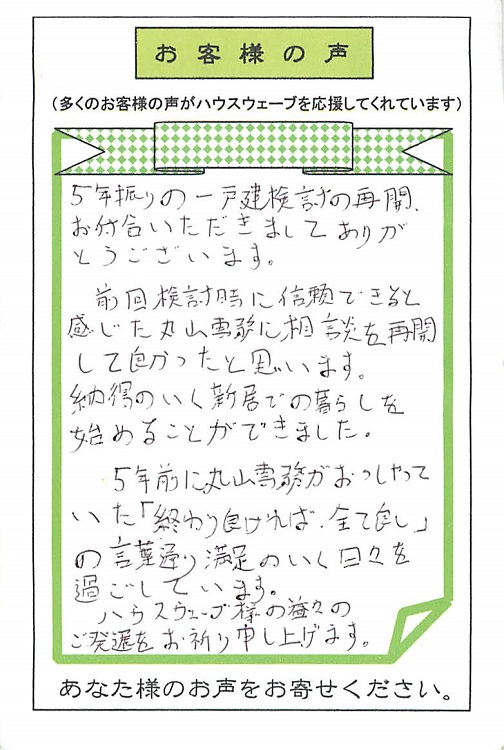 お客様の声
（多くのお客様の声がハウスウェーブを応援してくれています）
5年振りの一戸建検討の再開、
お付合いただきましてありが
とうございます。
前回検討時に信頼できると
感じた丸山専務に相談を再開
して良かったと思います。
納得のいく新居での暮らしを
始めることができました。
5年前に丸山専務がおっしゃって
いた「終わり良ければ、全て良し」
の言葉通り満足のいく日々を
過ごしています。
ハウスウェーブ様の益々の
ご発展をお祈り申し上げます。
あなた様のお声をお寄せください。